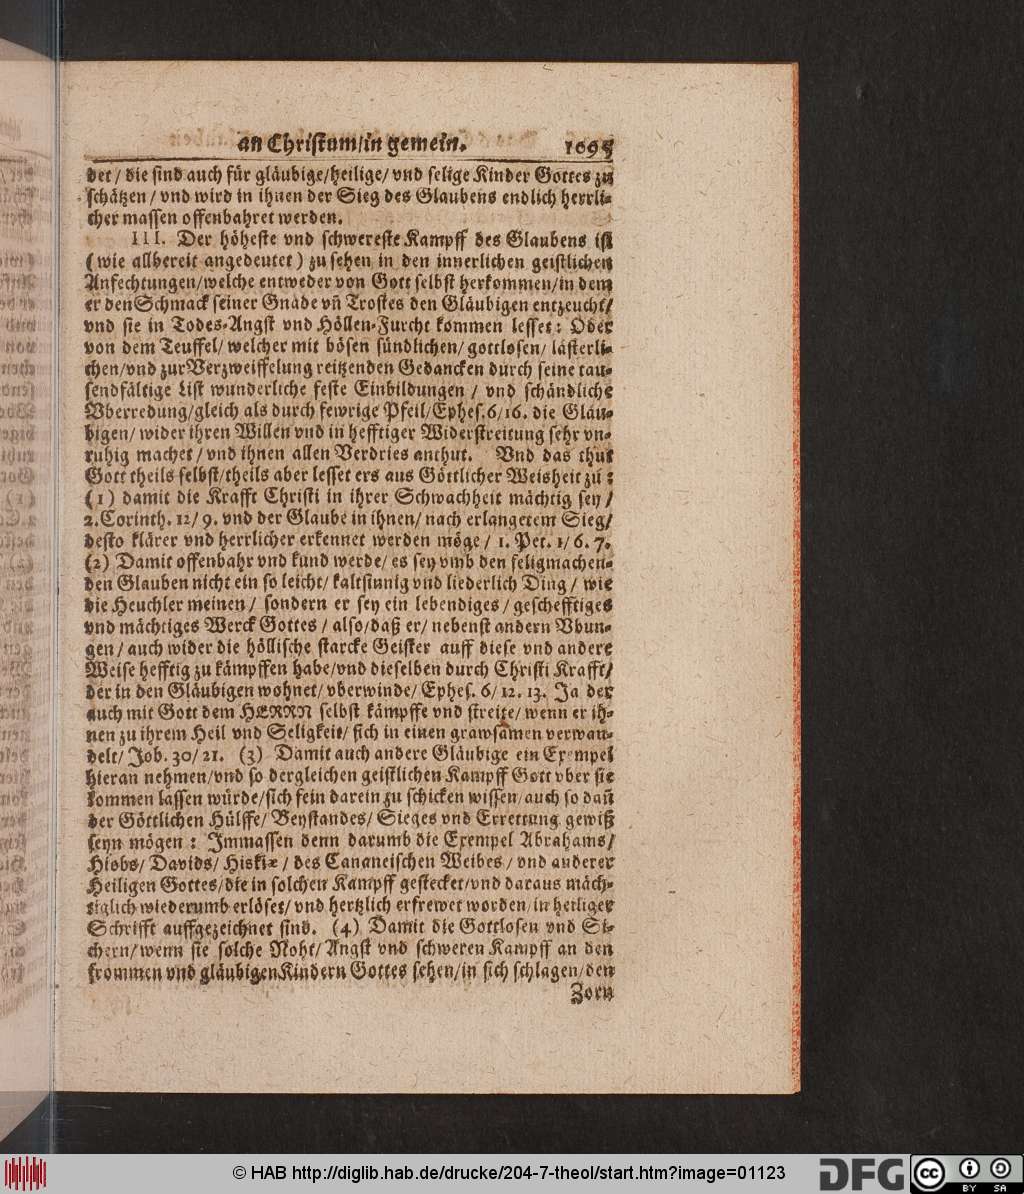 an Christum/in gemein. 1095
det / die sind auch für gläubige/heilige/ vnd selige Kinder Gottes zu
schätzen / vnd wird in ihnen der Sieg des Glaubens endlich herrli-
cher massen offenbahret werden.
III. Der höheste vnd schwereste Kampff des Glaubens ist
(wie allbereit angedeutet) zu sehen in den innerlichen geistlichen
Anfechtungen/welche entweder von Gott selbst herkommen/in dem
er den Schmack seiner Gnade vñ Trostes den Gläubigen entzeucht/
vnd sie in Todes-Angst vnd Höllen-Furcht kommen lesset: Oder
von dem Teuffel/ welcher mit bösen sündlichen/ gottlosen/ lästerli-
chen/vnd zur Verzweiffelung reitzenden Gedancken durch seine tau-
sendfältige List wunderliche feste Einbildungen / vnd schändliche
Vberredung/gleich als durch fewrige Pfeil/Ephes.6/16. die Gläu-
bigen/ wider ihren Willen vnd in hefftiger Widerstreitung sehr vn-
ruhig machet / vnd ihnen allen Verdries anthut. Vnd das thut
Gott theils selbst/theils aber lesset ers aus Göttlicher Weisheit zu:
(1) damit die Krafft Christi in ihrer Schwachheit mächtig sey /
2.Corinth. 12/ 9. vnd der Glaube in ihnen/ nach erlangetem Sieg/
desto klärer vnd herrlicher erkennet werden möge / 1. Pet. 1/ 6. 7.
(2) Damit offenbahr vnd kund werde/ es sey vmb den seligmachen-
den Glauben nicht ein so leicht/ kaltsinnig vnd liederlich Ding / wie
die Heuchler meinen / sondern er sey ein lebendiges / geschefftiges
vnd mächtiges Werck Gottes / also/daß er/ nebenst andern Vbun-
gen / auch wider die höllische starcke Geister auff diese vnd andere
Weise hefftig zu kämpffen habe/vnd dieselben durch Christi Krafft/
der in den Gläubigen wohnet/ vberwinde/ Ephes. 6/ 12. 13. Ja der
auch mit Gott dem HERRN selbst kämpffe vnd streite/ wenn er ih-
nen zu ihrem Heil vnd Seligkeit/ sich in einen grawsamen verwan-
delt/ Job. 30/ 21. (3) Damit auch andere Gläubige ein Exempel
hieran nehmen/vnd so dergleichen geistlichen Kampff Gott vber sie
kommen lassen würde/sich fein darein zu schicken wissen/auch so dañ
der Göttlichen Hülffe/ Beystandes/ Sieges vnd Errettung gewiß
seyn mögen : Immassen denn darumb die Exempel Abrahams/
Hiobs/ Davids/ Hiskiæ / des Cananeischen Weibes / vnd anderer
Heiligen Gottes/die in solchen Kampff gestecket/vnd daraus mäch-
tiglich wiederumb erlöset/ vnd hertzlich erfrewet worden/in heiliger
Schrifft auffgezeichnet sind. (4) Damit die Gottlosen vnd Si-
chern/wenn sie solche Noht/ Angst vnd schweren Kampff an den
frommen vnd gläubigen Kindern Gottes sehen/in sich schlagen/den
Zorn
© HAB http://diglib.hab.de/drucke/204-7-theol/start.htm?image=01123
DFG
cc
BY SA